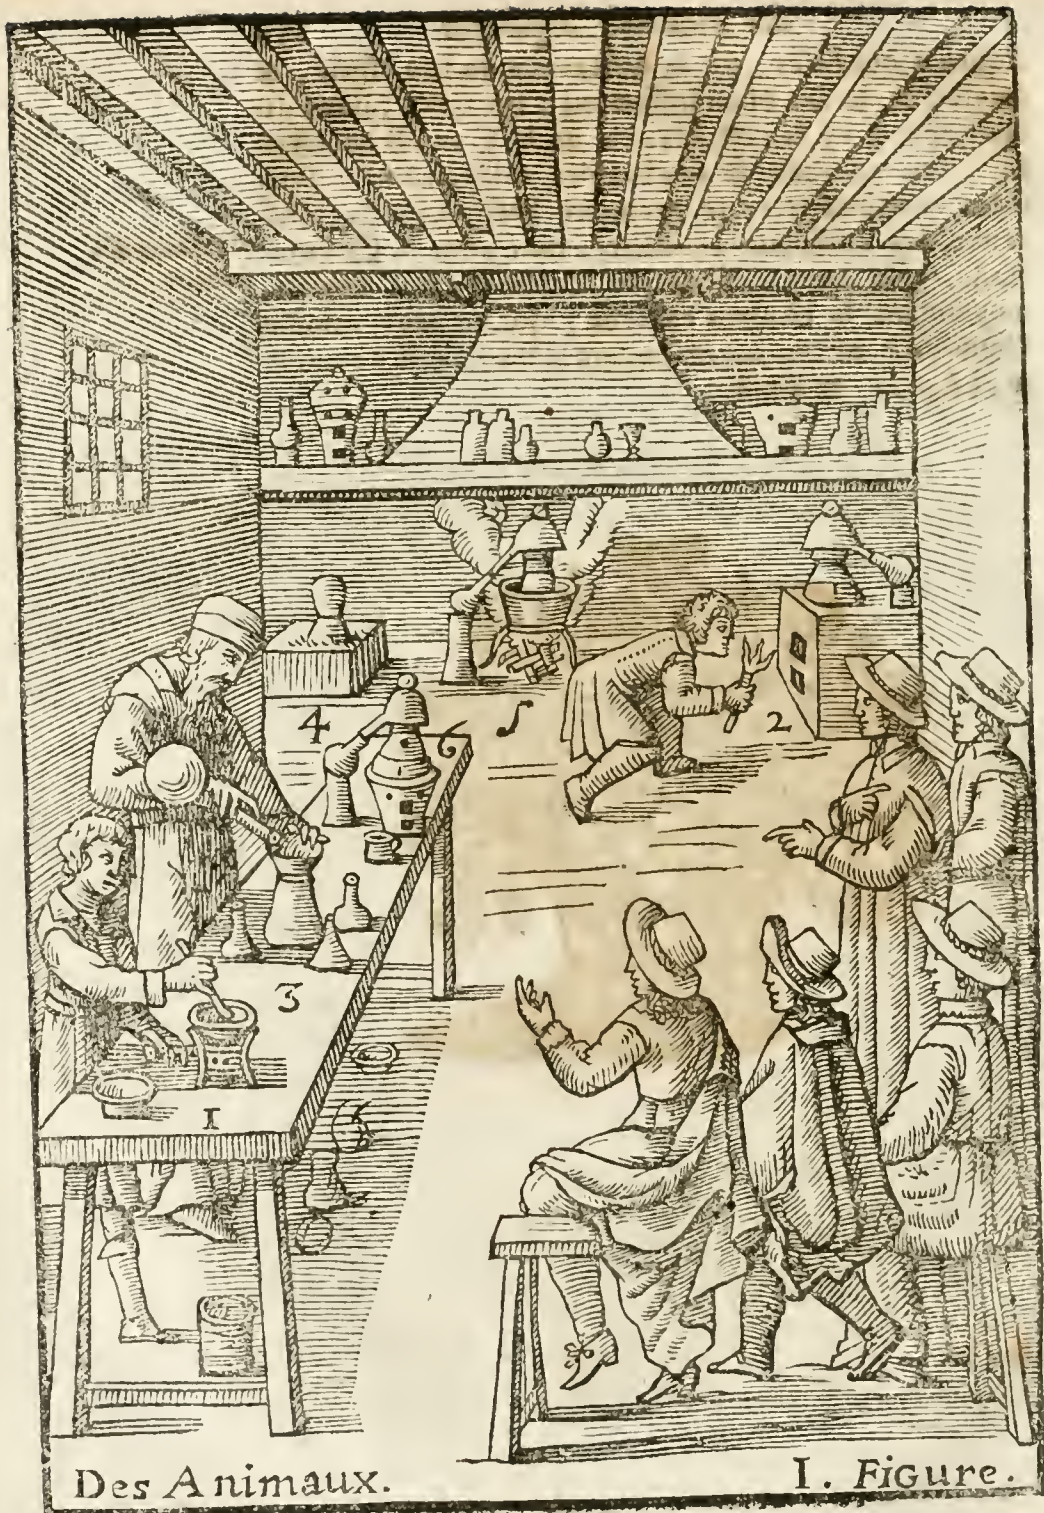 4
6
5
2
3
1
Des Animaux. I. Figure.